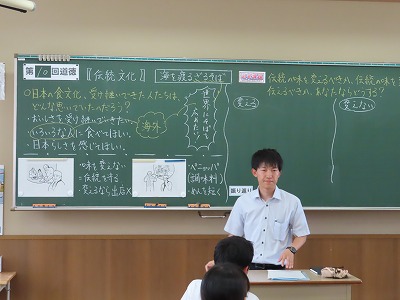 第10回道徳 〖伝統文化〗 海を渡るざるそば
○日本の食文化、受け継いできた人たちは、
どんな思いでいたのだろう？
・おいしさを受け継いでいきたい。
・いろいろな人に食べてほしい。
・日本らしさを感じてほしい。
海外
世界にそばを
広めたい！
味を変えない
=伝統を守る
・変えるなら出店×
・ペニャッパ
(調味料)
・めんを短く
伝統の味を変えるべきか、伝統の味を
伝えるべきか、あなたならどうする？
変える
変えない
振り返り